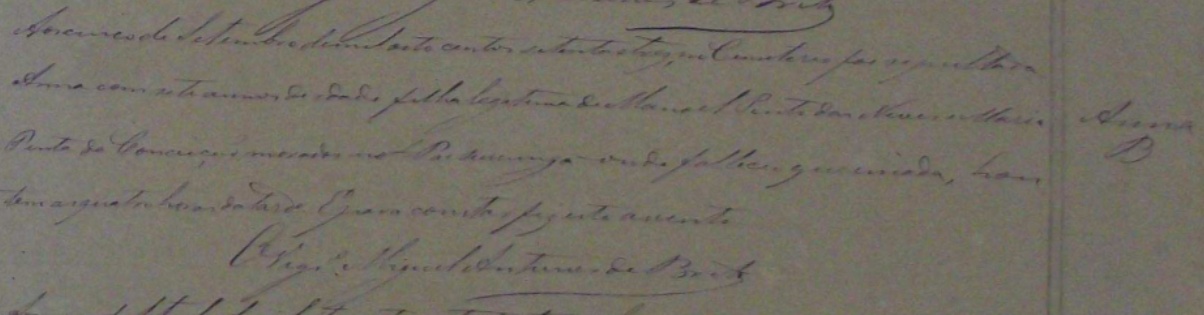 de Brito
Aos cinco de Setembro de mil oito centos setenta e tres, no Cemiterio foi sepultada
Anna com sete annos de idade filha legitima de Manoel Pinto das Neves e Maria
Anna
B
Pinta da Conceição morador no onde falleceu queimada, hon
tem as quatro horas da tarde. E para constar fiz este assento
O Vigr.º Miguel Antunes de Brito